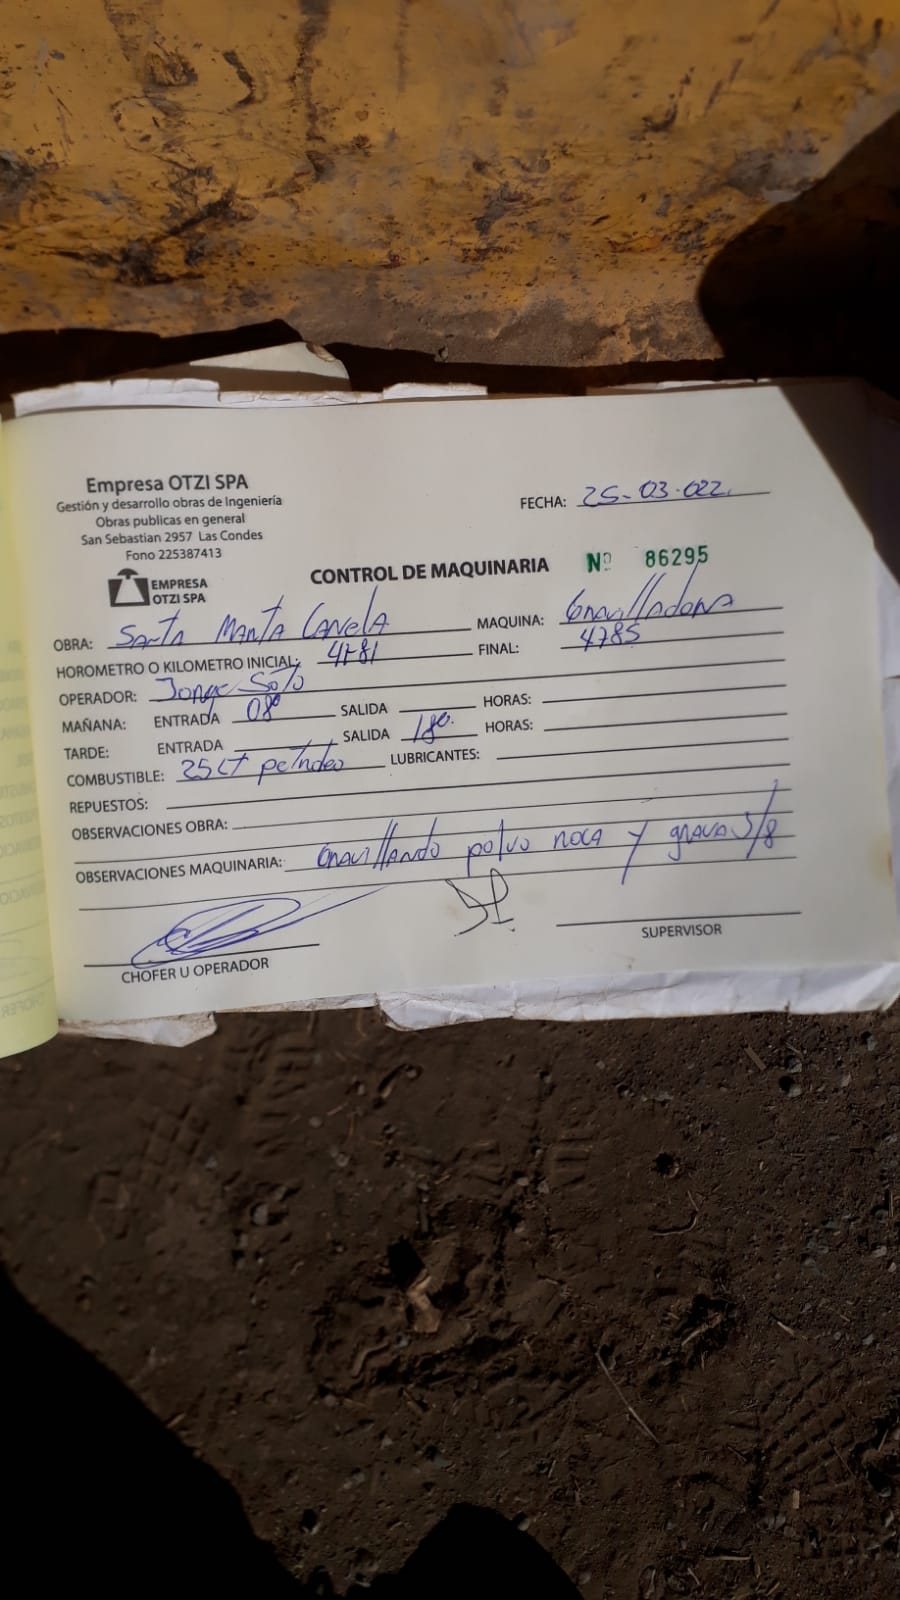 Empresa OTZI SPA
Gestión y desarrollo obras de Ingeniería
Obras publicas en general
San Sebastian 2957 Las Condes
Fono 225387413
EMPRESA
OTZI SPA
FECHA: 25-03-022.
CONTROL DE MAQUINARIA Nº 86295
OBRA: Santa Marta Canela MAQUINA: Gravilladora
HOROMETRO O KILOMETRO INICIAL: 4781 FINAL: 4785
OPERADOR: Jorge Soto
MAÑANA: ENTRADA 08⁰⁰ SALIDA HORAS:
TARDE: ENTRADA SALIDA 18⁰⁰. HORAS:
COMBUSTIBLE: 25 LT petroleo LUBRICANTES:
REPUESTOS:
OBSERVACIONES OBRA:
OBSERVACIONES MAQUINARIA: Gravillando polvo roca y grava 3/8
CHOFER U OPERADOR
SUPERVISOR